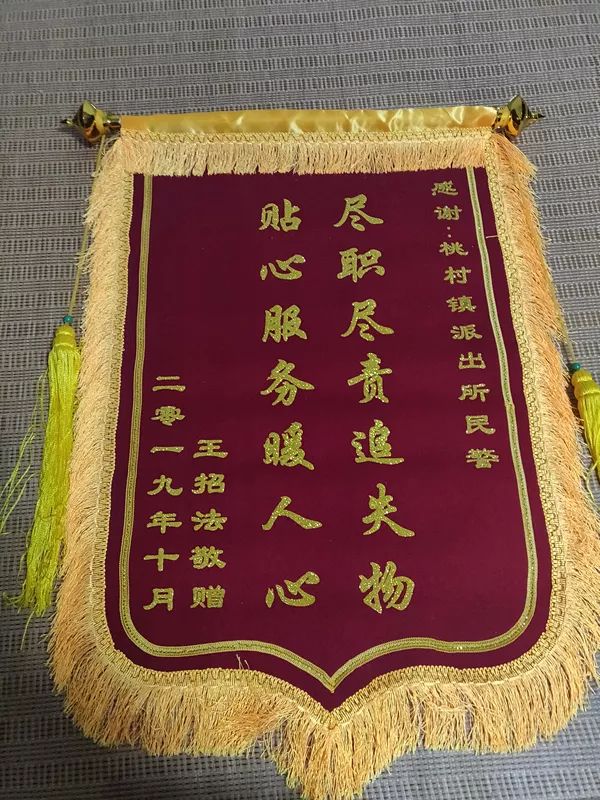 感谢:桃村镇派出所民警
尽职尽责追失物
贴心服务暖人心
王招法敬赠
二零一九年十月